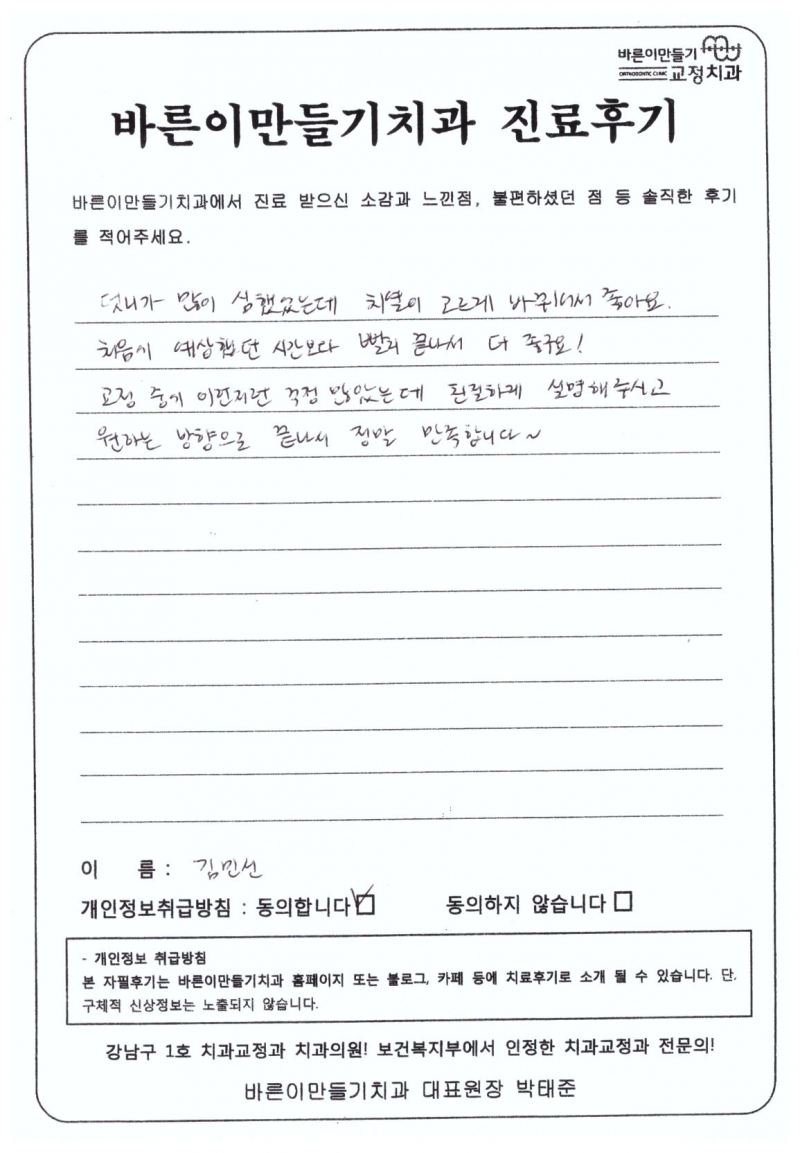 바른이만들기
ORTHODONTIC CLINIC 교정치과
바른이만들기치과 진료후기
바른이만들기치과에서 진료 받으신 소감과 느낀점, 불편하셨던 점 등 솔직한 후기
를 적어주세요.
덧니가 많이 심했었는데 치열이 고르게 바뀌어서 좋아요.
처음에 예상했던 시간보다 빨리 끝나서 더 좋구요!
교정 중에 이런저런 걱정 많았는데 친절하게 설명해주시고
원하는 방향으로 끝나서 정말 만족합니다~
이 름 : 김민선
개인정보취급방침 : 동의합니다 동의하지 않습니다
- 개인정보 취급방침
본 자필후기는 바른이만들기치과 홈페이지 또는 블로그, 카페 등에 치료후기로 소개 될 수 있습니다. 단,
구체적 신상정보는 노출되지 않습니다.
강남구 1호 치과교정과 치과의원! 보건복지부에서 인정한 치과교정과 전문의!
바른이만들기치과 대표원장 박태준